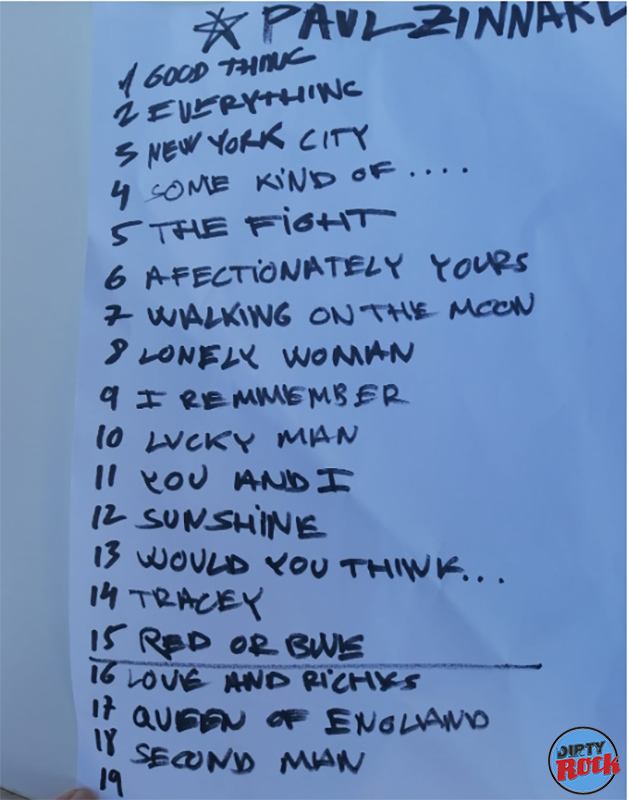 ☆ PAUL ZINNARD
1 GOOD THING
2 EVERYTHING
3 NEW YORK CITY
4 SOME KIND OF ....
5 THE FIGHT
6 AFECTIONATELY YOURS
7 WALKING ON THE MOON
8 LONELY WOMAN
9 I REMMEMBER
10 LUCKY MAN
11 YOU AND I
12 SUNSHINE
13 WOULD YOU THINK...
14 TRACEY
15 RED OR BLUE
16 LOVE AND RICHES
17 QUEEN OF ENGLAND
18 SECOND MAN
19
DIRTY
ROCK